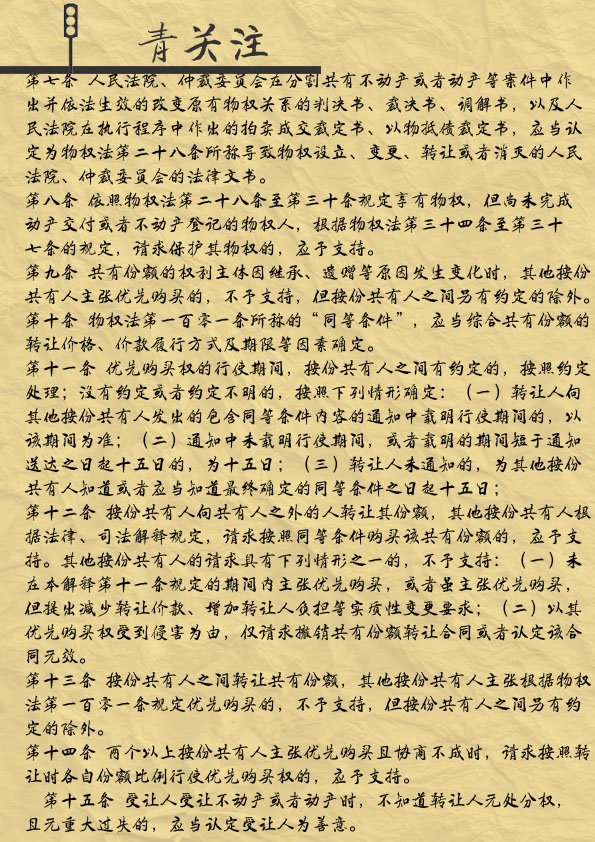 青关注
第七条 人民法院、仲裁委员会在分割共有不动产或者动产等案件中作
出并依法生效的改变原有物权关系的判决书、裁决书、调解书，以及人
民法院在执行程序中作出的拍卖成交裁定书、以物抵债裁定书，应当认
定为物权法第二十八条所称导致物权设立、变更、转让或者消灭的人民
法院、仲裁委员会的法律文书。
第八条 依照物权法第二十八条至第三十条规定享有物权，但尚未完成
动产交付或者不动产登记的物权人，根据物权法第三十四条至第三十
七条的规定，请求保护其物权的，应予支持。
第九条 共有份额的权利主体因继承、遗赠等原因发生变化时，其他按份
共有人主张优先购买的，不予支持，但按份共有人之间另有约定的除外。
第十条 物权法第一百零一条所称的“同等条件”，应当综合共有份额的
转让价格、价款履行方式及期限等因素确定。
第十一条 优先购买权的行使期间，按份共有人之间有约定的，按照约定
处理；没有约定或者约定不明的，按照下列情形确定：（一）转让人向
其他按份共有人发出的包含同等条件内容的通知中载明行使期间的，以
该期间为准；（二）通知中未载明行使期间，或者载明的期间短于通知
送达之日起十五日的，为十五日；（三）转让人未通知的，为其他按份
共有人知道或者应当知道最终确定的同等条件之日起十五日；
第十二条 按份共有人向共有人之外的人转让其份额，其他按份共有人根
据法律、司法解释规定，请求按照同等条件购买该共有份额的，应予支
持。其他按份共有人的请求具有下列情形之一的，不予支持：（一）未
在本解释第十一条规定的期间内主张优先购买，或者虽主张优先购买，
但提出减少转让价款、增加转让人负担等实质性变更要求；（二）以其
优先购买权受到侵害为由，仅请求撤销共有份额转让合同或者认定该合
同无效。
第十三条 按份共有人之间转让共有份额，其他按份共有人主张根据物权
法第一百零一条规定优先购买的，不予支持，但按份共有人之间另有约
定的除外。
第十四条 两个以上按份共有人主张优先购买且协商不成时，请求按照转
让时各自份额比例行使优先购买权的，应予支持。
第十五条 受让人受让不动产或者动产时，不知道转让人无处分权，
且无重大过失的，应当认定受让人为善意。